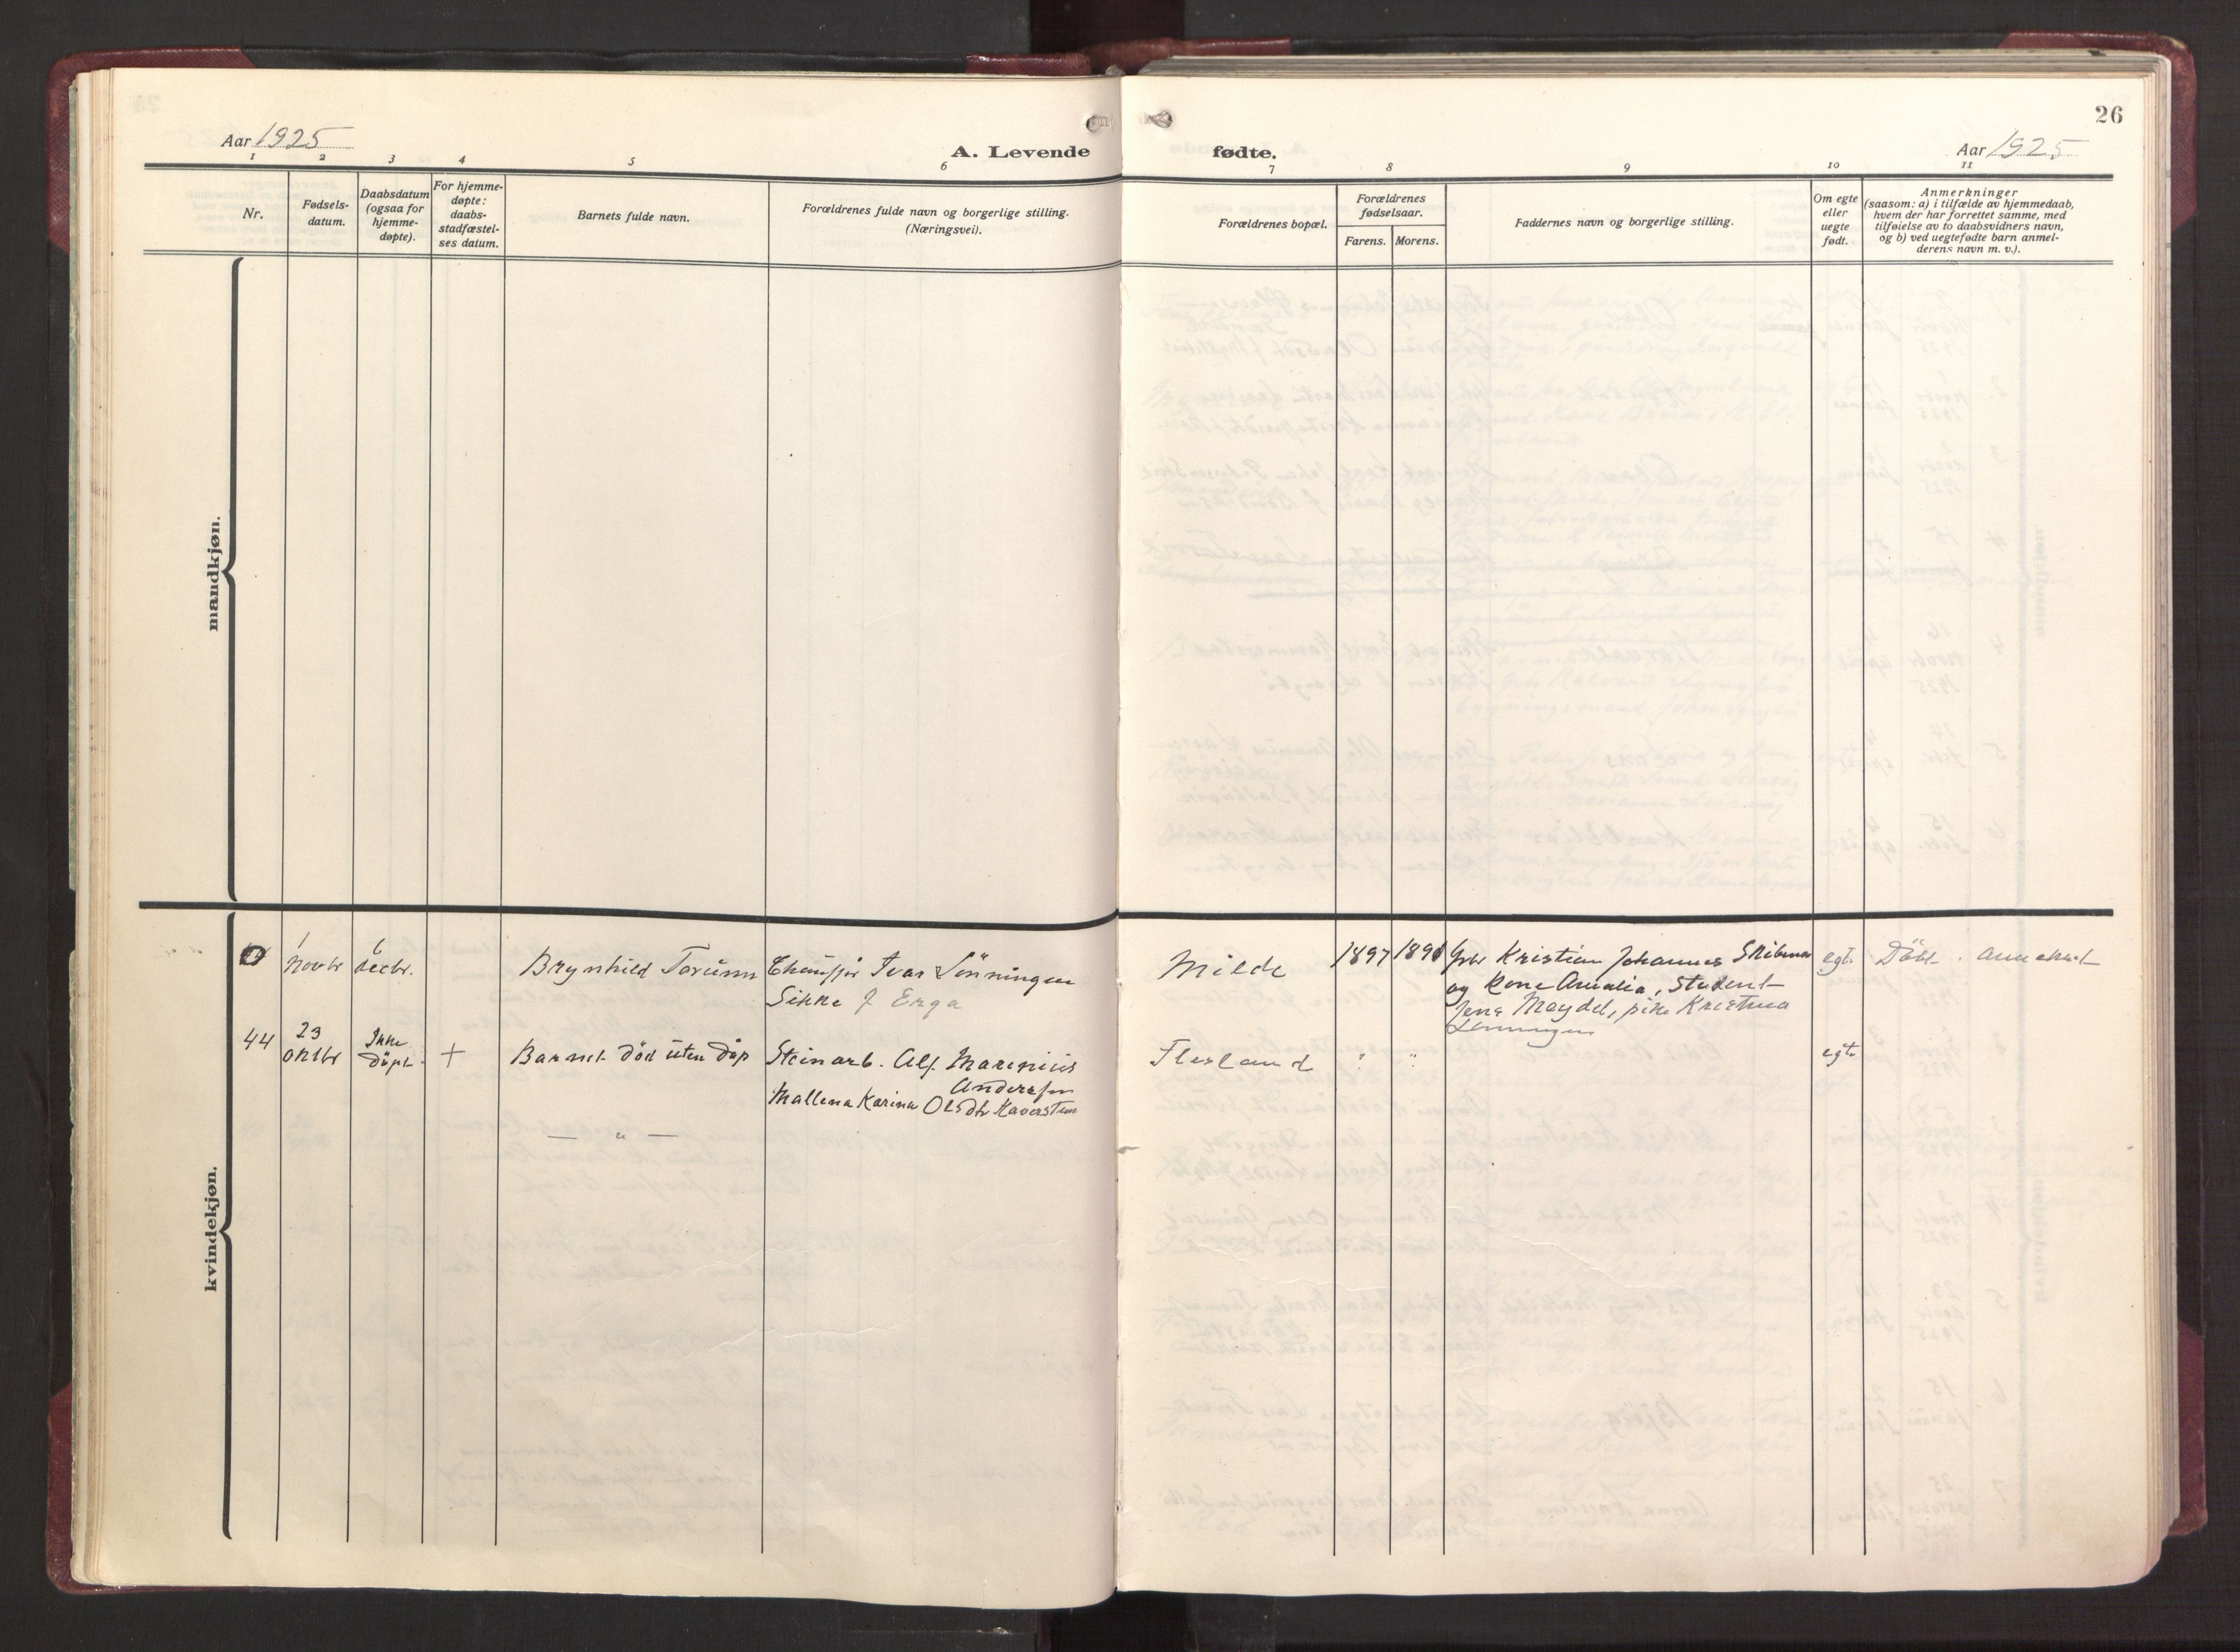 26
Aar 1925
A. Levende fødte.
Aar 1925
1 2 3 4 5 6 7 8 9 10 11
Nr.
Fødsels-
datum.
Daabsdatum
(ogsaa for
hjemme-
døpte).
For hjemme-
døpte:
daabs-
stadfæstel-
ses datum.
Barnets fulde navn.
Forældrenes fulde navn og borgerlige stilling.
(Næringsvei).
Forældrenes bopæl.
Forældrenes
fødselsaar.
Farens. Morens.
Faddernes navn og borgerlige stilling.
Om egte
eller
uegte
født.
Anmerkninger
(saasom: a) i tilfælde av hjemmedaab,
hvem der har forrettet samme, med
tilføielse av to daabsvidners navn,
og b) ved uegtefødte barn anmel-
derens navn m. v.).
mandkjøn.
kvindekjøn.
1
Novbr
6
decbr.
Brynhild Torunn
Chaufför Ivar Lönningen
Sikke f Erga
Milde
1897
Gbr Kristian Johannes
og Kone Amalia, Student
Jens Meydel, pike Kristina
Lönningen
egte
Döbt
44
23
oktbr
Ikke
döpt
+
Barnet död uten dåp
Steinarb. Alf Marenius
Andersen
Mallena Karina Olsdtr Haverstein
Flesland
" "
egte
— " —